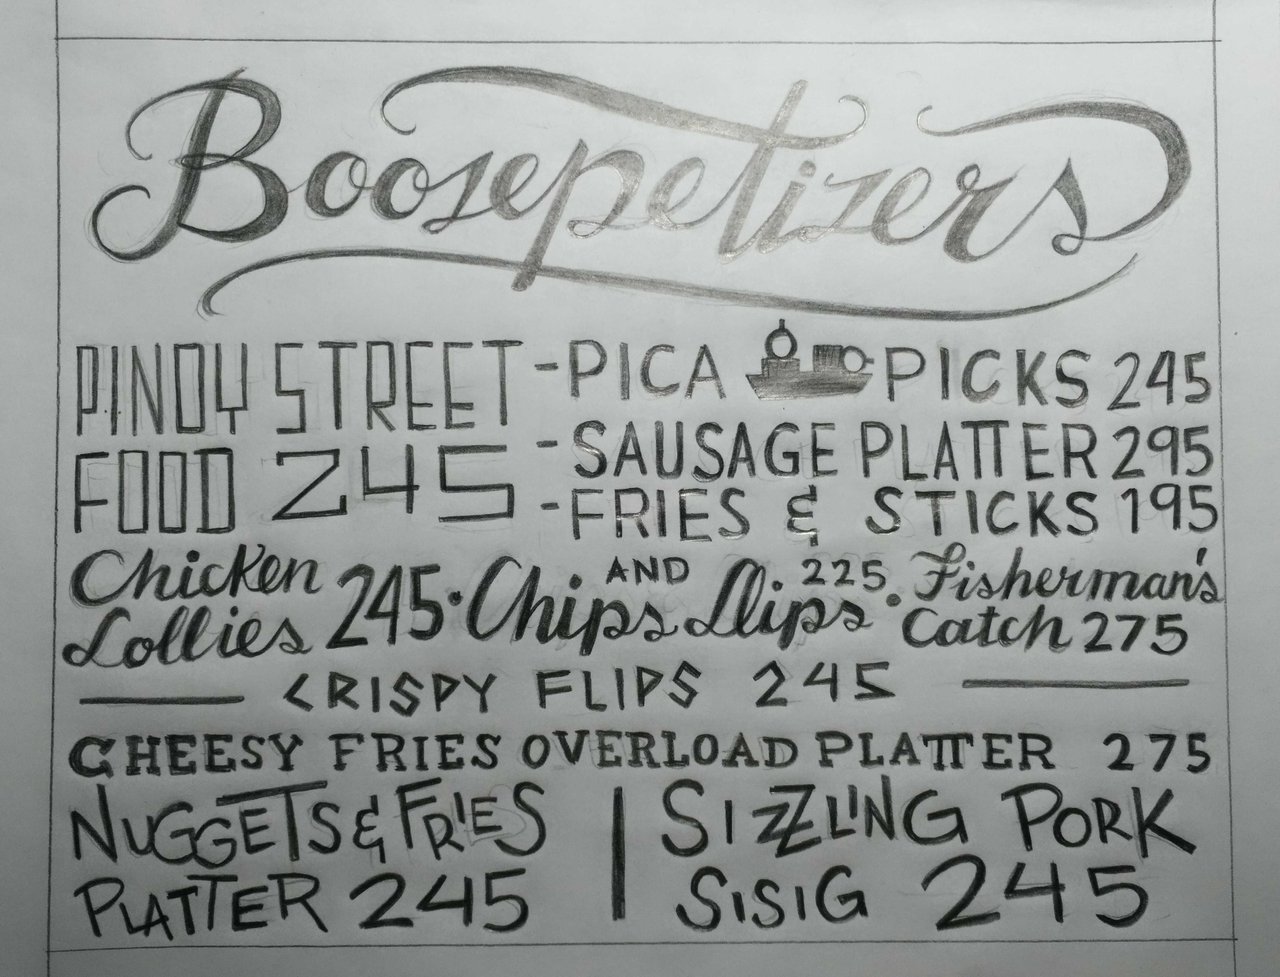 Boozepetizers
PINOY STREET
FOOD 245
-PICA PICKS 245
-SAUSAGE PLATTER 295
-FRIES & STICKS 195
Chicken
Lollies 245 · Chips AND Dips 225 · Fisherman's
Catch 275
CRISPY FLIPS 245
CHEESY FRIES OVERLOAD PLATTER 275
NUGGETS & FRIES
PLATTER 245
SIZZLING PORK
SISIG 245